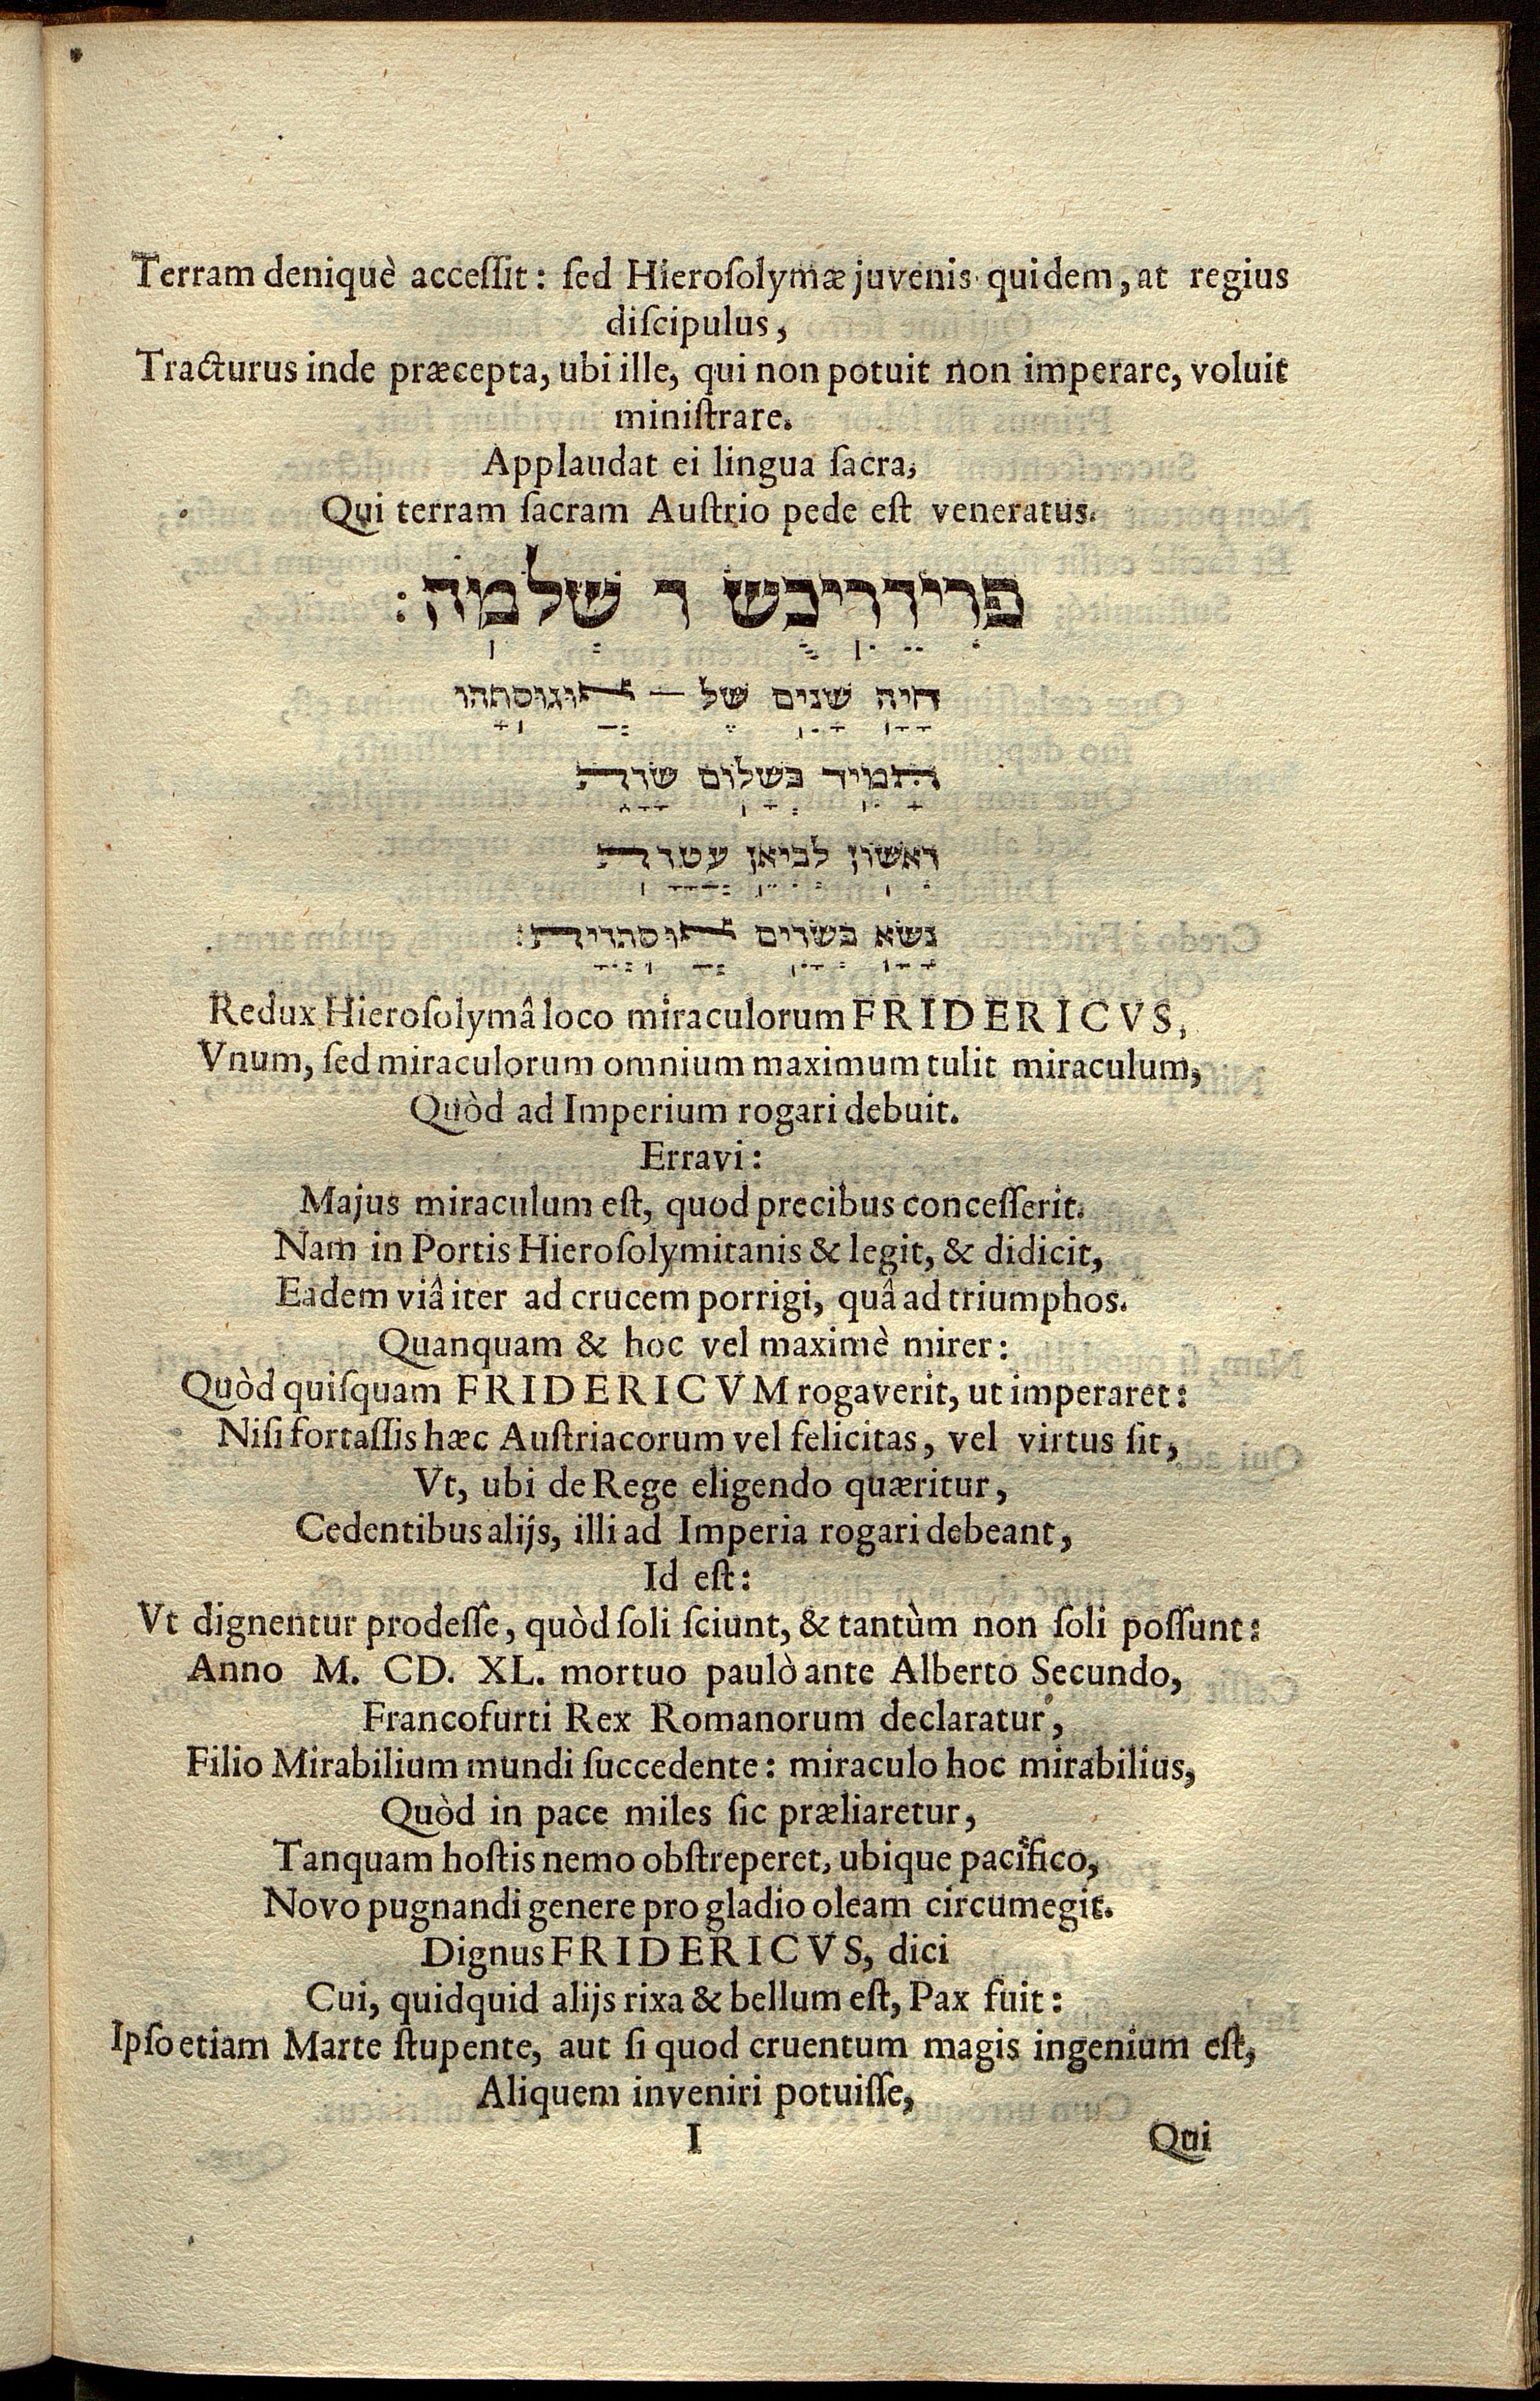 Terram deniquè accessit: sed Hierosolymæ juvenis quidem, at regius
discipulus,
Tracturus inde præcepta, ubi ille, qui non potuit non imperare, voluit
ministrare.
Applaudat ei lingua sacra,
Qui terram sacram Austrio pede est veneratus.
פרידריכש ד שלמה:
היה שנים של — אוגוסתהו
התמיד בשלום שורה
ראשון לביאן עטרה
נשא בשרים אוסתריה:
Redux Hierosolymâ loco miraculorum FRIDERICVS,
Vnum, sed miraculorum omnium maximum tulit miraculum,
Quòd ad Imperium rogari debuit.
Erravi:
Majus miraculum est, quod precibus concesserit.
Nam in Portis Hierosolymitanis & legit, & didicit,
Eadem viâ iter ad crucem porrigi, quâ ad triumphos.
Quanquam & hoc vel maximè mirer:
Quòd quisquam FRIDERICVM rogaverit, ut imperaret:
Nisi fortassis hæc Austriacorum vel felicitas, vel virtus sit,
Vt, ubi de Rege eligendo quæritur,
Cedentibus alijs, illi ad Imperia rogari debeant,
Id est:
Vt dignentur prodesse, quòd soli sciunt, & tantùm non soli possunt:
Anno M. CD. XL. mortuo paulò ante Alberto Secundo,
Francofurti Rex Romanorum declaratur,
Filio Mirabilium mundi succedente: miraculo hoc mirabilius,
Quòd in pace miles sic præliaretur,
Tanquam hostis nemo obstreperet, ubique pacifico,
Novo pugnandi genere pro gladio oleam circumegit.
Dignus FRIDERICVS, dici
Cui, quidquid alijs rixa & bellum est, Pax fuit:
Ipso etiam Marte stupente, aut si quod cruentum magis ingenium est,
Aliquem inveniri potuisse,
I Qui